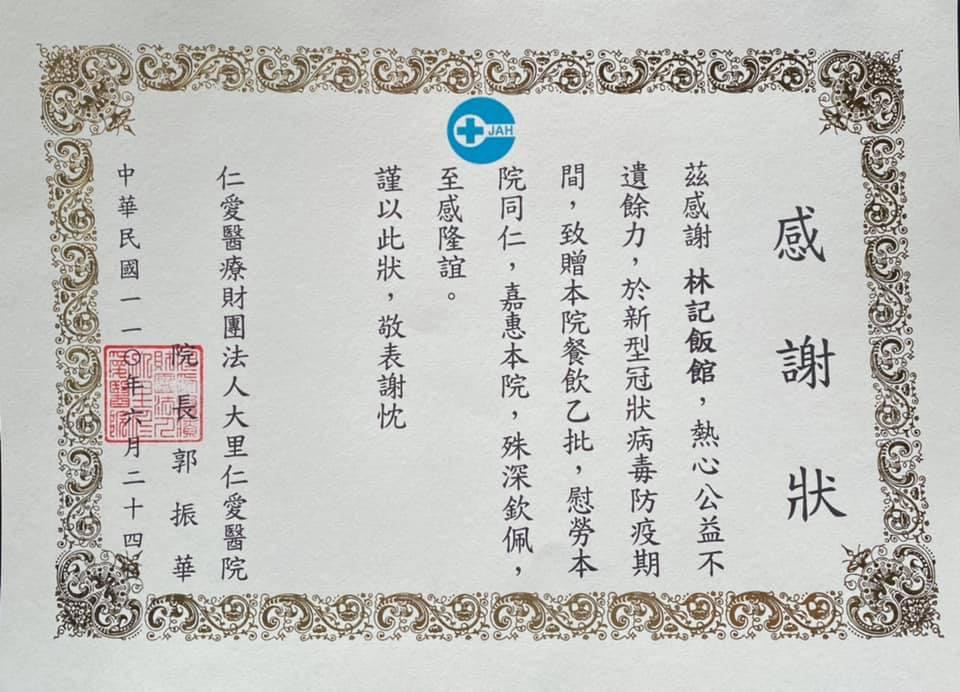 感謝狀
茲感謝 林記飯館，熱心公益不
遺餘力，於新型冠狀病毒防疫期
間，致贈本院餐飲乙批，慰勞本
院同仁，嘉惠本院，殊深欽佩，
至感隆誼。
謹以此狀，敬表謝忱
仁愛醫療財團法人大里仁愛醫院
院長郭振華
中華民國一一〇年六月二十四
JAH